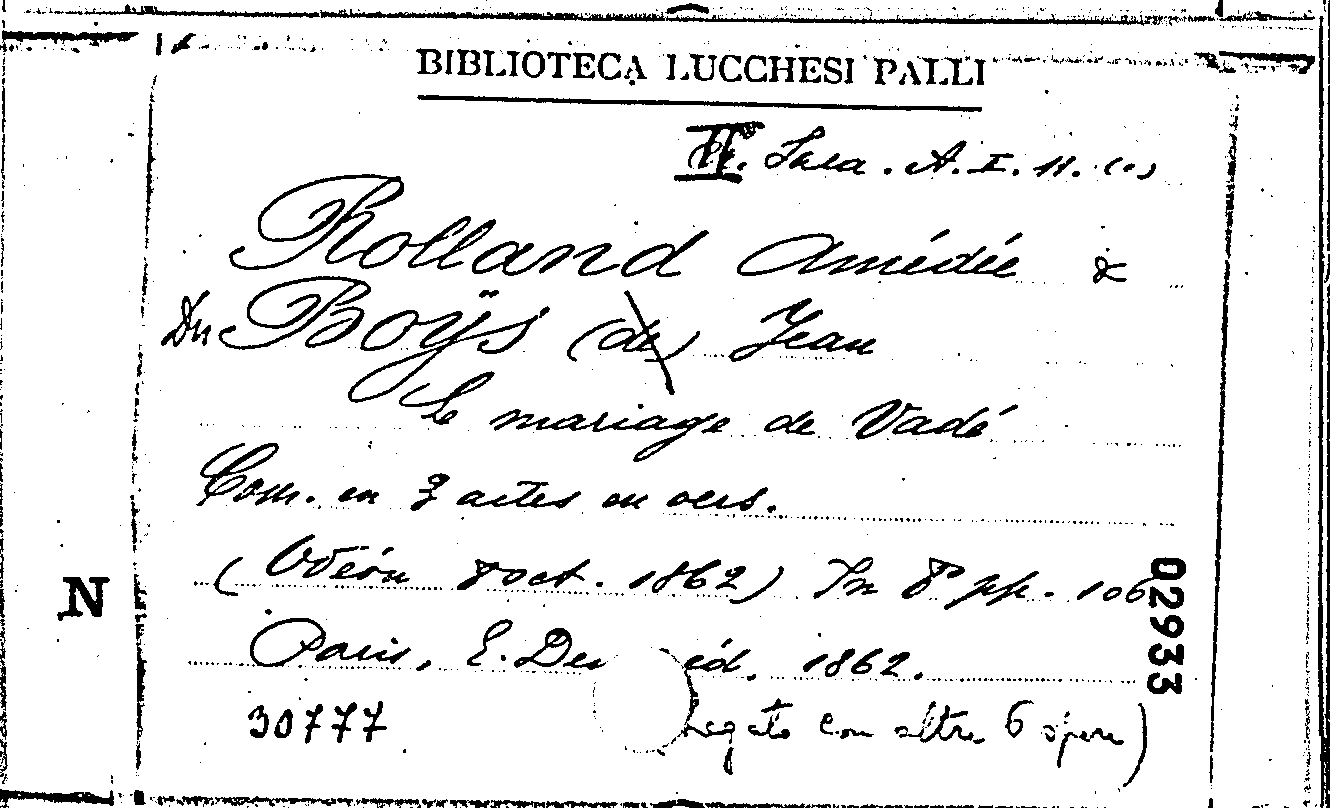 BIBLIOTECA LUCCHESI PALLI
II. Sala. A. I. 11. (1)
Rolland Amédée &
Du Boÿs (de) Jean
Le mariage de Vadé
Com. en 3 actes en vers.
(Odéon 8 oct. 1862) In 8º pp. 106
Paris, E. Den éd. 1862.
30777 Legato con altre 6 opere)
N
02933